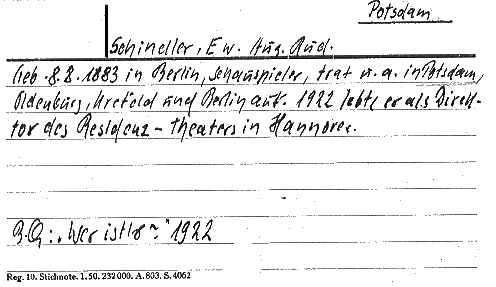 Potsdam
Schindler, Ew. Aug. Rud.
Geb. 8.8.1883 in Berlin, Schauspieler, trat u. a. in Potsdam,
Oldenburg, Krefeld und Berlin auf. 1922 lebte er als Direk-
tor des Residenz-Theaters in Hannover.
B.Q.: „Wer ist's?" 1922
Reg. 10. Stichnote. 1. 50. 232000. A. 803. S. 4062